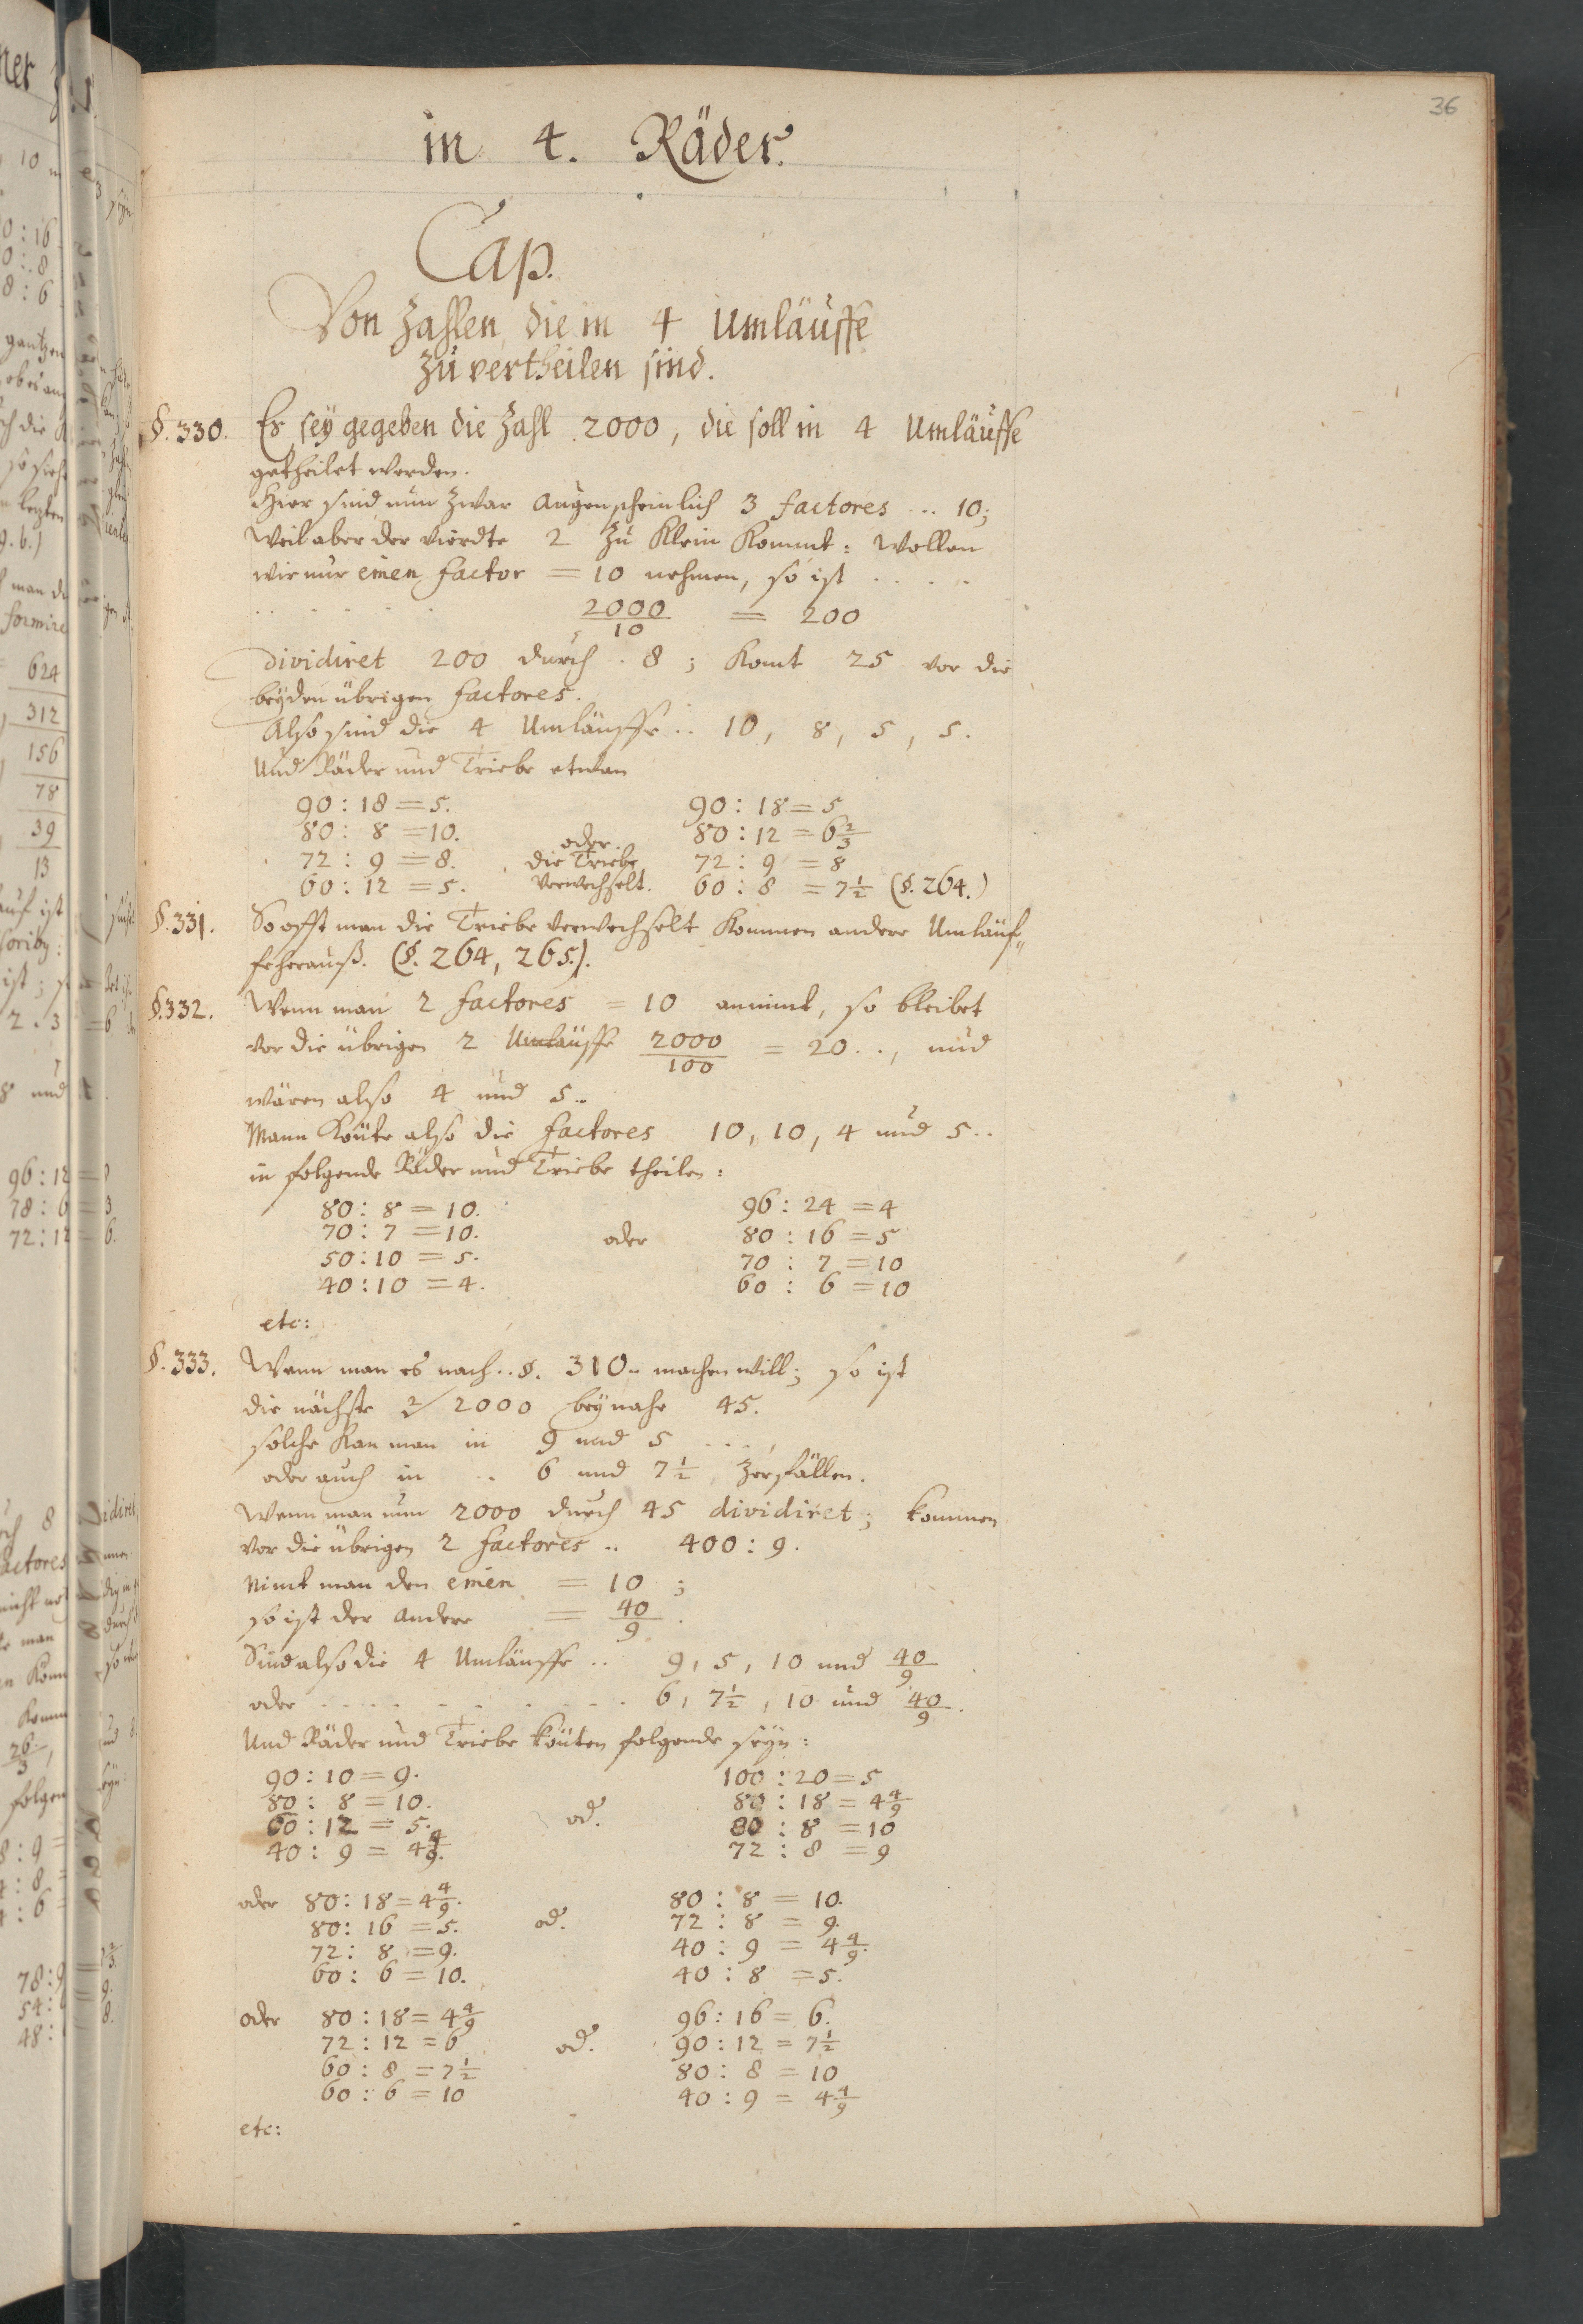 36
in 4. Räder.
Cap.
Von Zahlen, die in 4 Umläuffe
zu vertheilen sind.
§. 330. Es sey gegeben die Zahl 2000, die soll in 4 Umläuffe
getheilet werden.
Hier sind nun zwar augenscheinlich 3 factores ... 10;
Weil aber der vierdte 2 zu klein kommt: Wollen
wir nur einen factor = 10 nehmen, so ist . . . .
. . . . . 2000/10 = 200
dividiret 200 durch . 8 ; komt 25 vor die
beyden übrigen factores.
Also sind die 4 Umläuffe .. 10, 8, 5, 5.
Und Räder und Triebe etwan
90 : 18 = 5. 90 : 18 = 5
80 : 8 = 10. oder 80 : 12 = 6 2/3
72 : 9 = 8. die Triebe 72 : 9 = 8
60 : 12 = 5. verwechselt. 60 : 8 = 7 1/2 (§. 264.)
§. 331. So offt man die Triebe verwechselt kommen andere Umläuf„
fe herauß. (§. 264, 265.).
§. 332. Wenn man 2 factores = 10 annimt, so bleibet
vor die übrigen 2 Umläuffe 2000/100 = 20 . ., und
wären also 4 und 5..
Mann könte also die factores 10, 10, 4 und 5..
in folgende Räder und Triebe theilen:
80 : 8 = 10. 96 : 24 = 4
70 : 7 = 10. oder 80 : 16 = 5
50 : 10 = 5. 70 : 7 = 10
40 : 10 = 4. 60 : 6 = 10
etc:
§. 333. Wenn man es nach .. §. 310.. machen will; so ist
die nächste 2/ 2000 beynahe 45.
solche kan man in 9 und 5 . . . ,
oder auch in .. 6 und 7 1/2 zerfällen.
Wenn man nun 2000 durch 45 dividiret; kommen
vor die übrigen 2 factores .. 400 : 9.
Nimt man den einen = 10 ;
so ist der andere = 40/9 .
Sind also die 4 Umläuffe .. 9, 5, 10 und 40/9
oder . . . . . . . . 6, 7 1/2, 10 und 40/9.
Und Räder und Triebe könten folgende seyn:
90 : 10 = 9. 100 : 20 = 5
80 : 8 = 10. od. 80 : 18 = 4 4/9
60 : 12 = 5. 80 : 8 = 10
40 : 9 = 4 4/9. 72 : 8 = 9
oder 80 : 18 = 4 4/9. 80 : 8 = 10.
80 : 16 = 5. od. 72 : 8 = 9.
72 : 8 = 9. 40 : 9 = 4 4/9.
60 : 6 = 10. 40 : 8 = 5.
oder 80 : 18 = 4 4/9 96 : 16 = 6.
72 : 12 = 6 od. 90 : 12 = 7 1/2
60 : 8 = 7 1/2 80 : 8 = 10
60 : 6 = 10 40 : 9 = 4 4/9
etc: